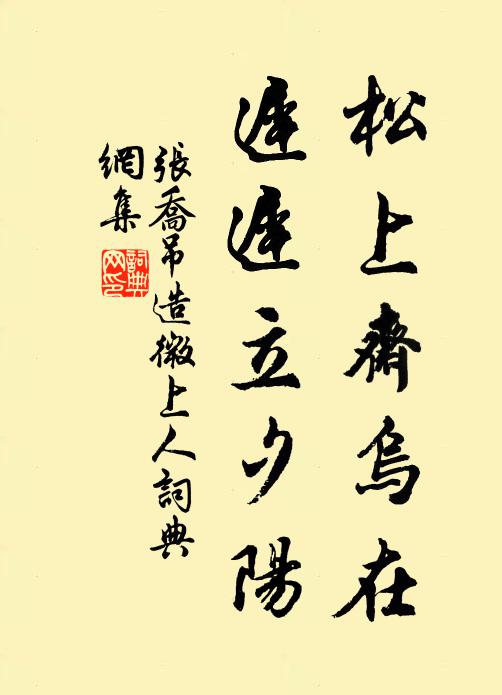 松上齋烏在
遲遲立夕陽
張喬吊造微上人詞典
網集
詞典
网印